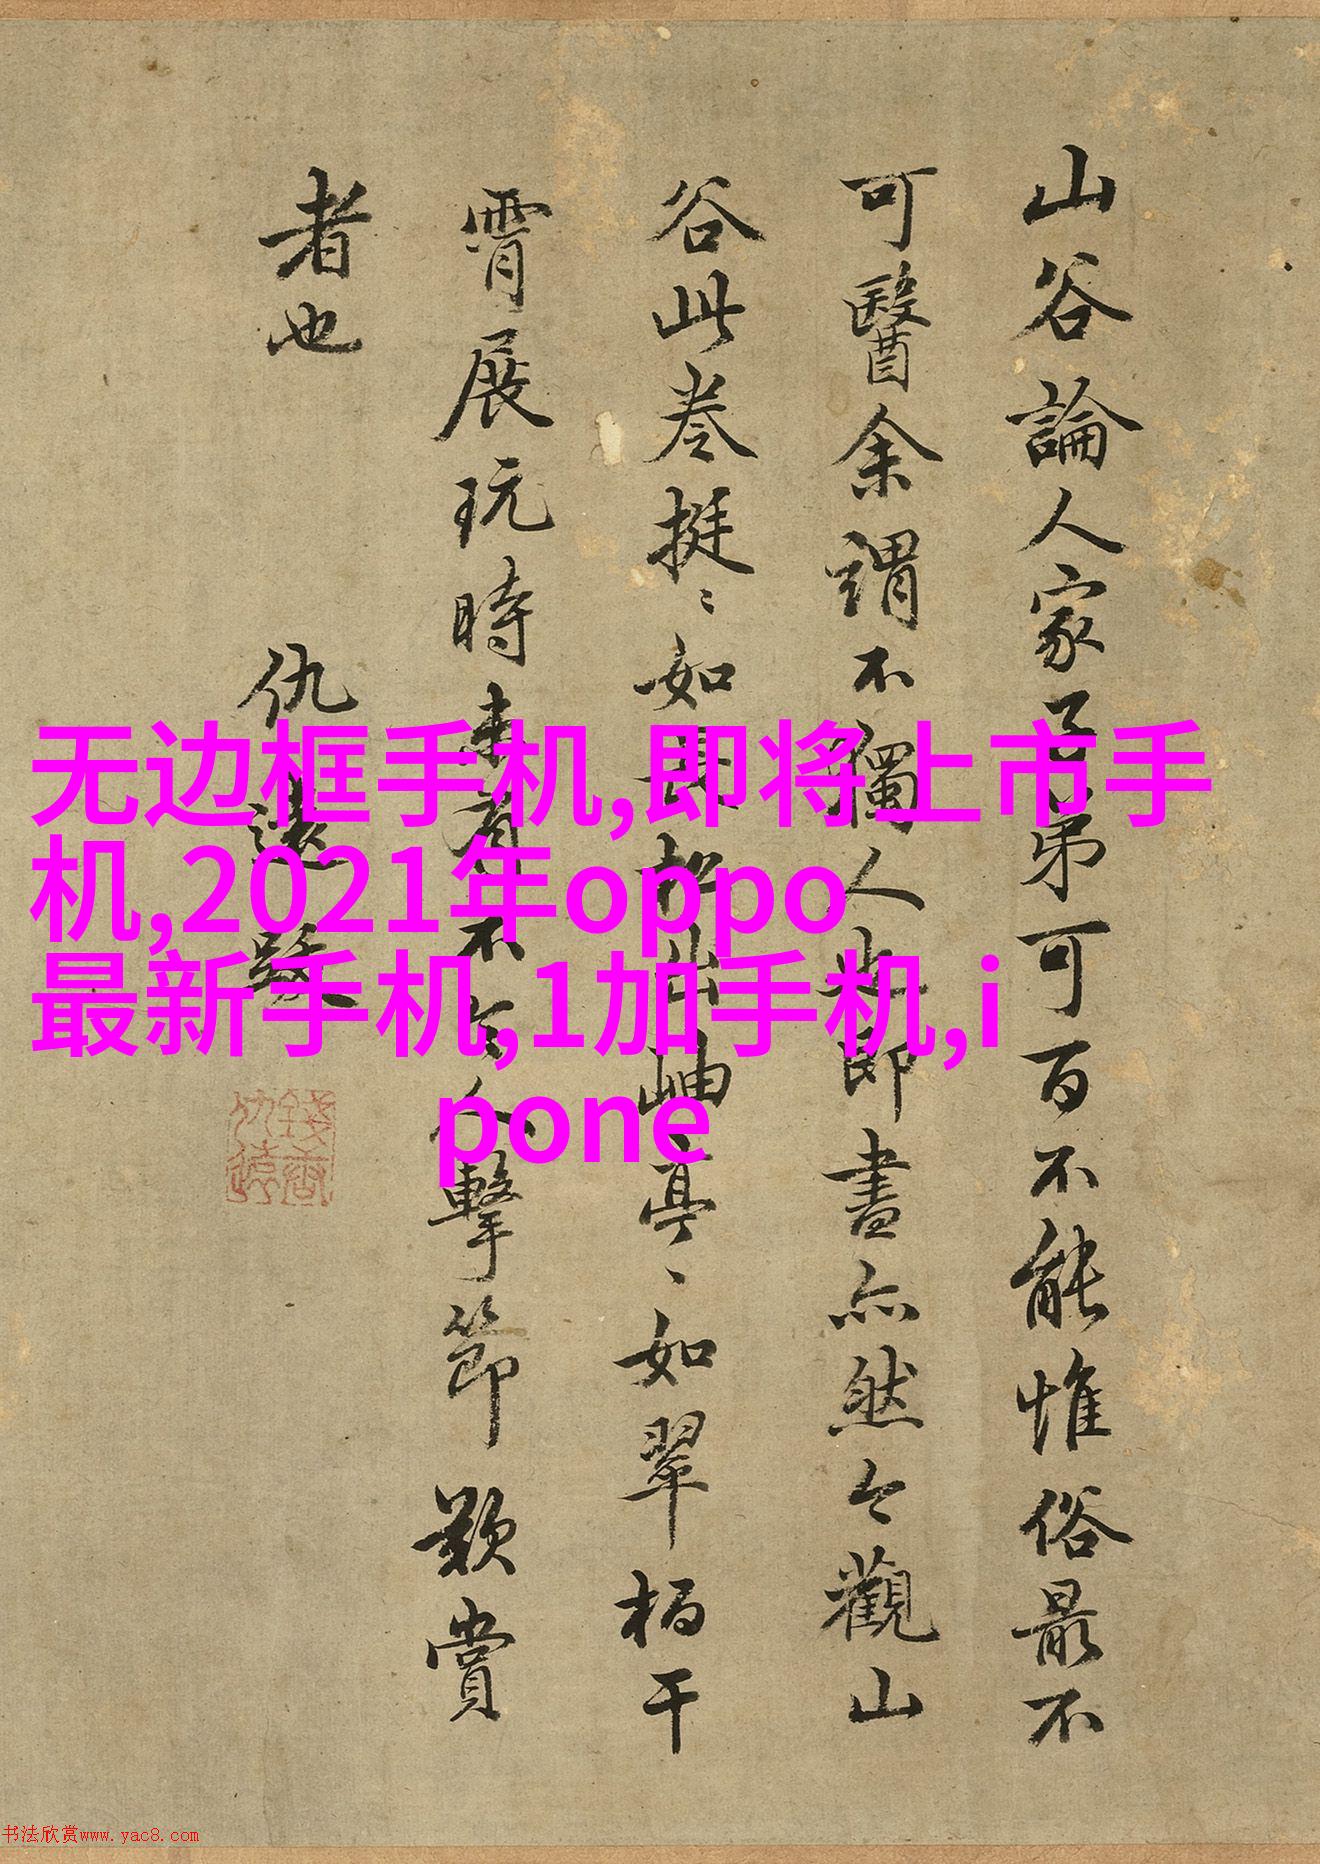 山谷論人家子弟可百不能惟俗最不
可醫余謂不獨人也即畫亦然今觀山
谷此卷挺〻如長松出岫亭〻如翠栢干
霄展玩時未有不令人擊節歎賞
者也
仇遠跋
无边框手机,即将上市手
机,2021年oppo
最新手机,1加手机,i
pone
书法欣赏www.yac8.com